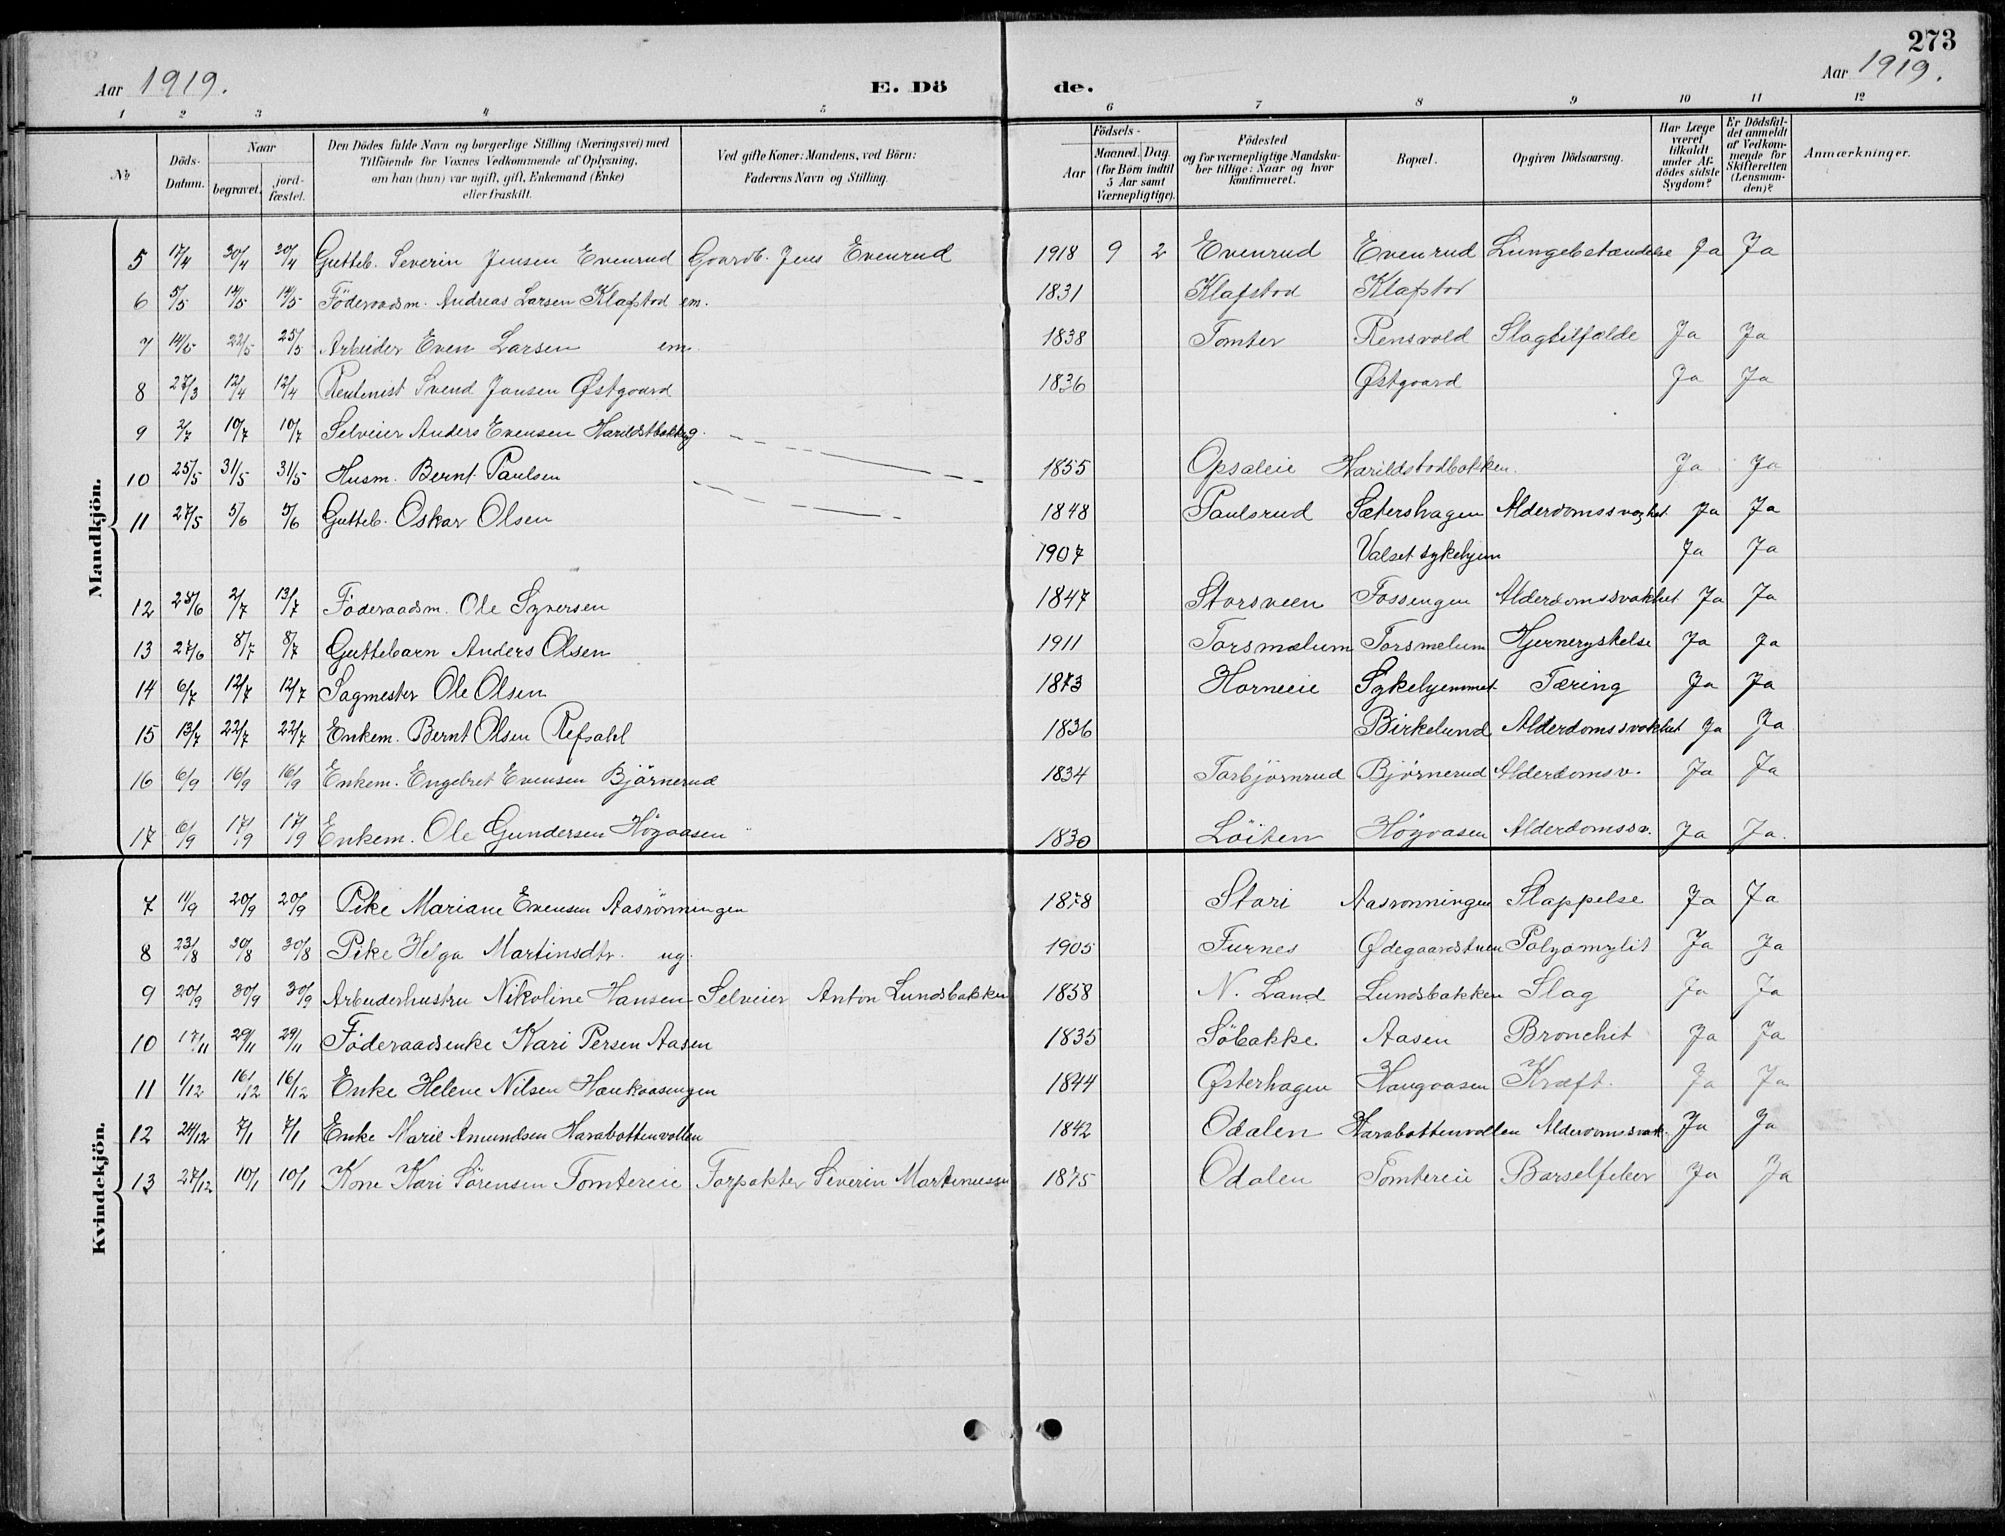 273
Aar 1919.
E. Döde.
Aar 1919.
1 2 3 4 5 6 7 8 9 10 11 12
№
Döds-Datum.
Naar
begravet.
jord-fæstet.
Den Dödes fulde Navn og borgerlige Stilling (Næringsvei) med
Tilföiende for Voxnes Vedkommende af Oplysning,
om han (hun) var ugift, gift, Enkemand (Enke)
eller fraskilt.
Ved gifte Koner: Mandens, ved Börn:
Faderens Navn og Stilling.
Födsels-
Aar
Maaned. Dag.
(for Börn indtil
5 Aar samt
Værnepligtige).
Födested
og for værnepligtige Mandska-
ber tillige: Naar og hvor
konfirmeret.
Bopæl.
Opgiven Dödsaarsag.
Har Læge
været
tilkaldt
under Af-
dödes sidste
Sygdom?
Er Dödsfal-
det anmeldt
af Vedkom-
mende for
Skifteretten
(Lensman-
den)?
Anmærkninger.
Mandkjön.
5 17/4 20/4 20/4 Gutteb. Severin Jensen Evenrud Gaardb. Jens Evenrud 1918 9 2 Evenrud Evenrud Lungebetændelse Ja Ja
6 5/5 14/5 14/5 Föderaadsm. Andreas Larsen Klafstad em. 1831 Klafstad Klafstad
7 14/5 22/5 25/5 Arbeider Even Larsen em. 1838 Tomter Rensvold Slagtilfælde Ja Ja
8 27/3 12/4 12/4 Rentenist Svend Jansen Østgaard 1836 Østgaard Ja Ja
9 2/7 10/7 10/7 Selveier Anders Evensen
10 25/5 31/5 31/5 Husm. Bernt Paulsen 1855 Opsaleie Harildstadbakken. Ja Ja
11 27/5 5/6 5/6 Gutteb. Oskar Olsen 1848 Paulsrud Sætershagen Alderdomssvaghet Ja Ja
1907 Valset sykehjem Ja Ja
12 23/6 2/7 13/7 Föderaadsm. Ole Syversen 1847 Storsveen Fossengen Alderdomssvakhet Ja Ja
13 27/6 8/7 8/7 Guttebarn Anders Olsen 1911 Torsmælum Torsmelum Hjernerystelse Ja Ja
14 6/7 12/7 12/7 Sagmester Ole Olsen 1873 Horneeie Sykehjemmet Tæring Ja Ja
15 13/7 22/7 22/7 Enkem. Bernt Olsen Refsahl 1836 Birkelund Alderdomssvakhet Ja Ja
16 6/9 16/9 16/9 Enkem. Engebret Evensen Björnerud 1834 Torbjörnrud Bjørnerud Alderdomsv. Ja Ja
17 6/9 17/9 17/9 Enkem. Ole Gundersen Högaasen 1830 Löiten Högaasen Alderdomssv. Ja Ja.
Kvindekjön.
7 11/9 20/9 20/9 Pike Mariane Evensen Aasrönningen 1878 Stari Aasronningen Slappelse Ja Ja
8 23/8 30/8 30/8 Pike Helga Martinsdtr. ug. 1905 Furnes Ødegaardstuen Polyomylit Ja Ja
9 20/9 30/9 30/9 Arbeiderhustru Nikoline Hansen Selveier Anton Lundsbakken 1858 N. Land Lundsbakken Slag Ja Ja
10 17/11 29/11 29/11 Föderaadsenke Kari Persen Aasen 1835 Söbakke Aasen Bronchit Ja Ja
11 1/12 16/12 16/12 Enke Helene Nilsen Haukaasengen 1844 Østerhagen Haugaasen Kræft. Ja Ja
12 24/12 7/1 7/1 Enke Marie Amundsen Harabottenvollen 1842 Odalen Harabottenvollen Alderdomssvak. Ja Ja
13 27/12 10/1 10/1 Kone Kari Sørensen Tomtereie Forpakter Severin Martinussen 1875 Odalen Tomtereie Barselfeber Ja Ja